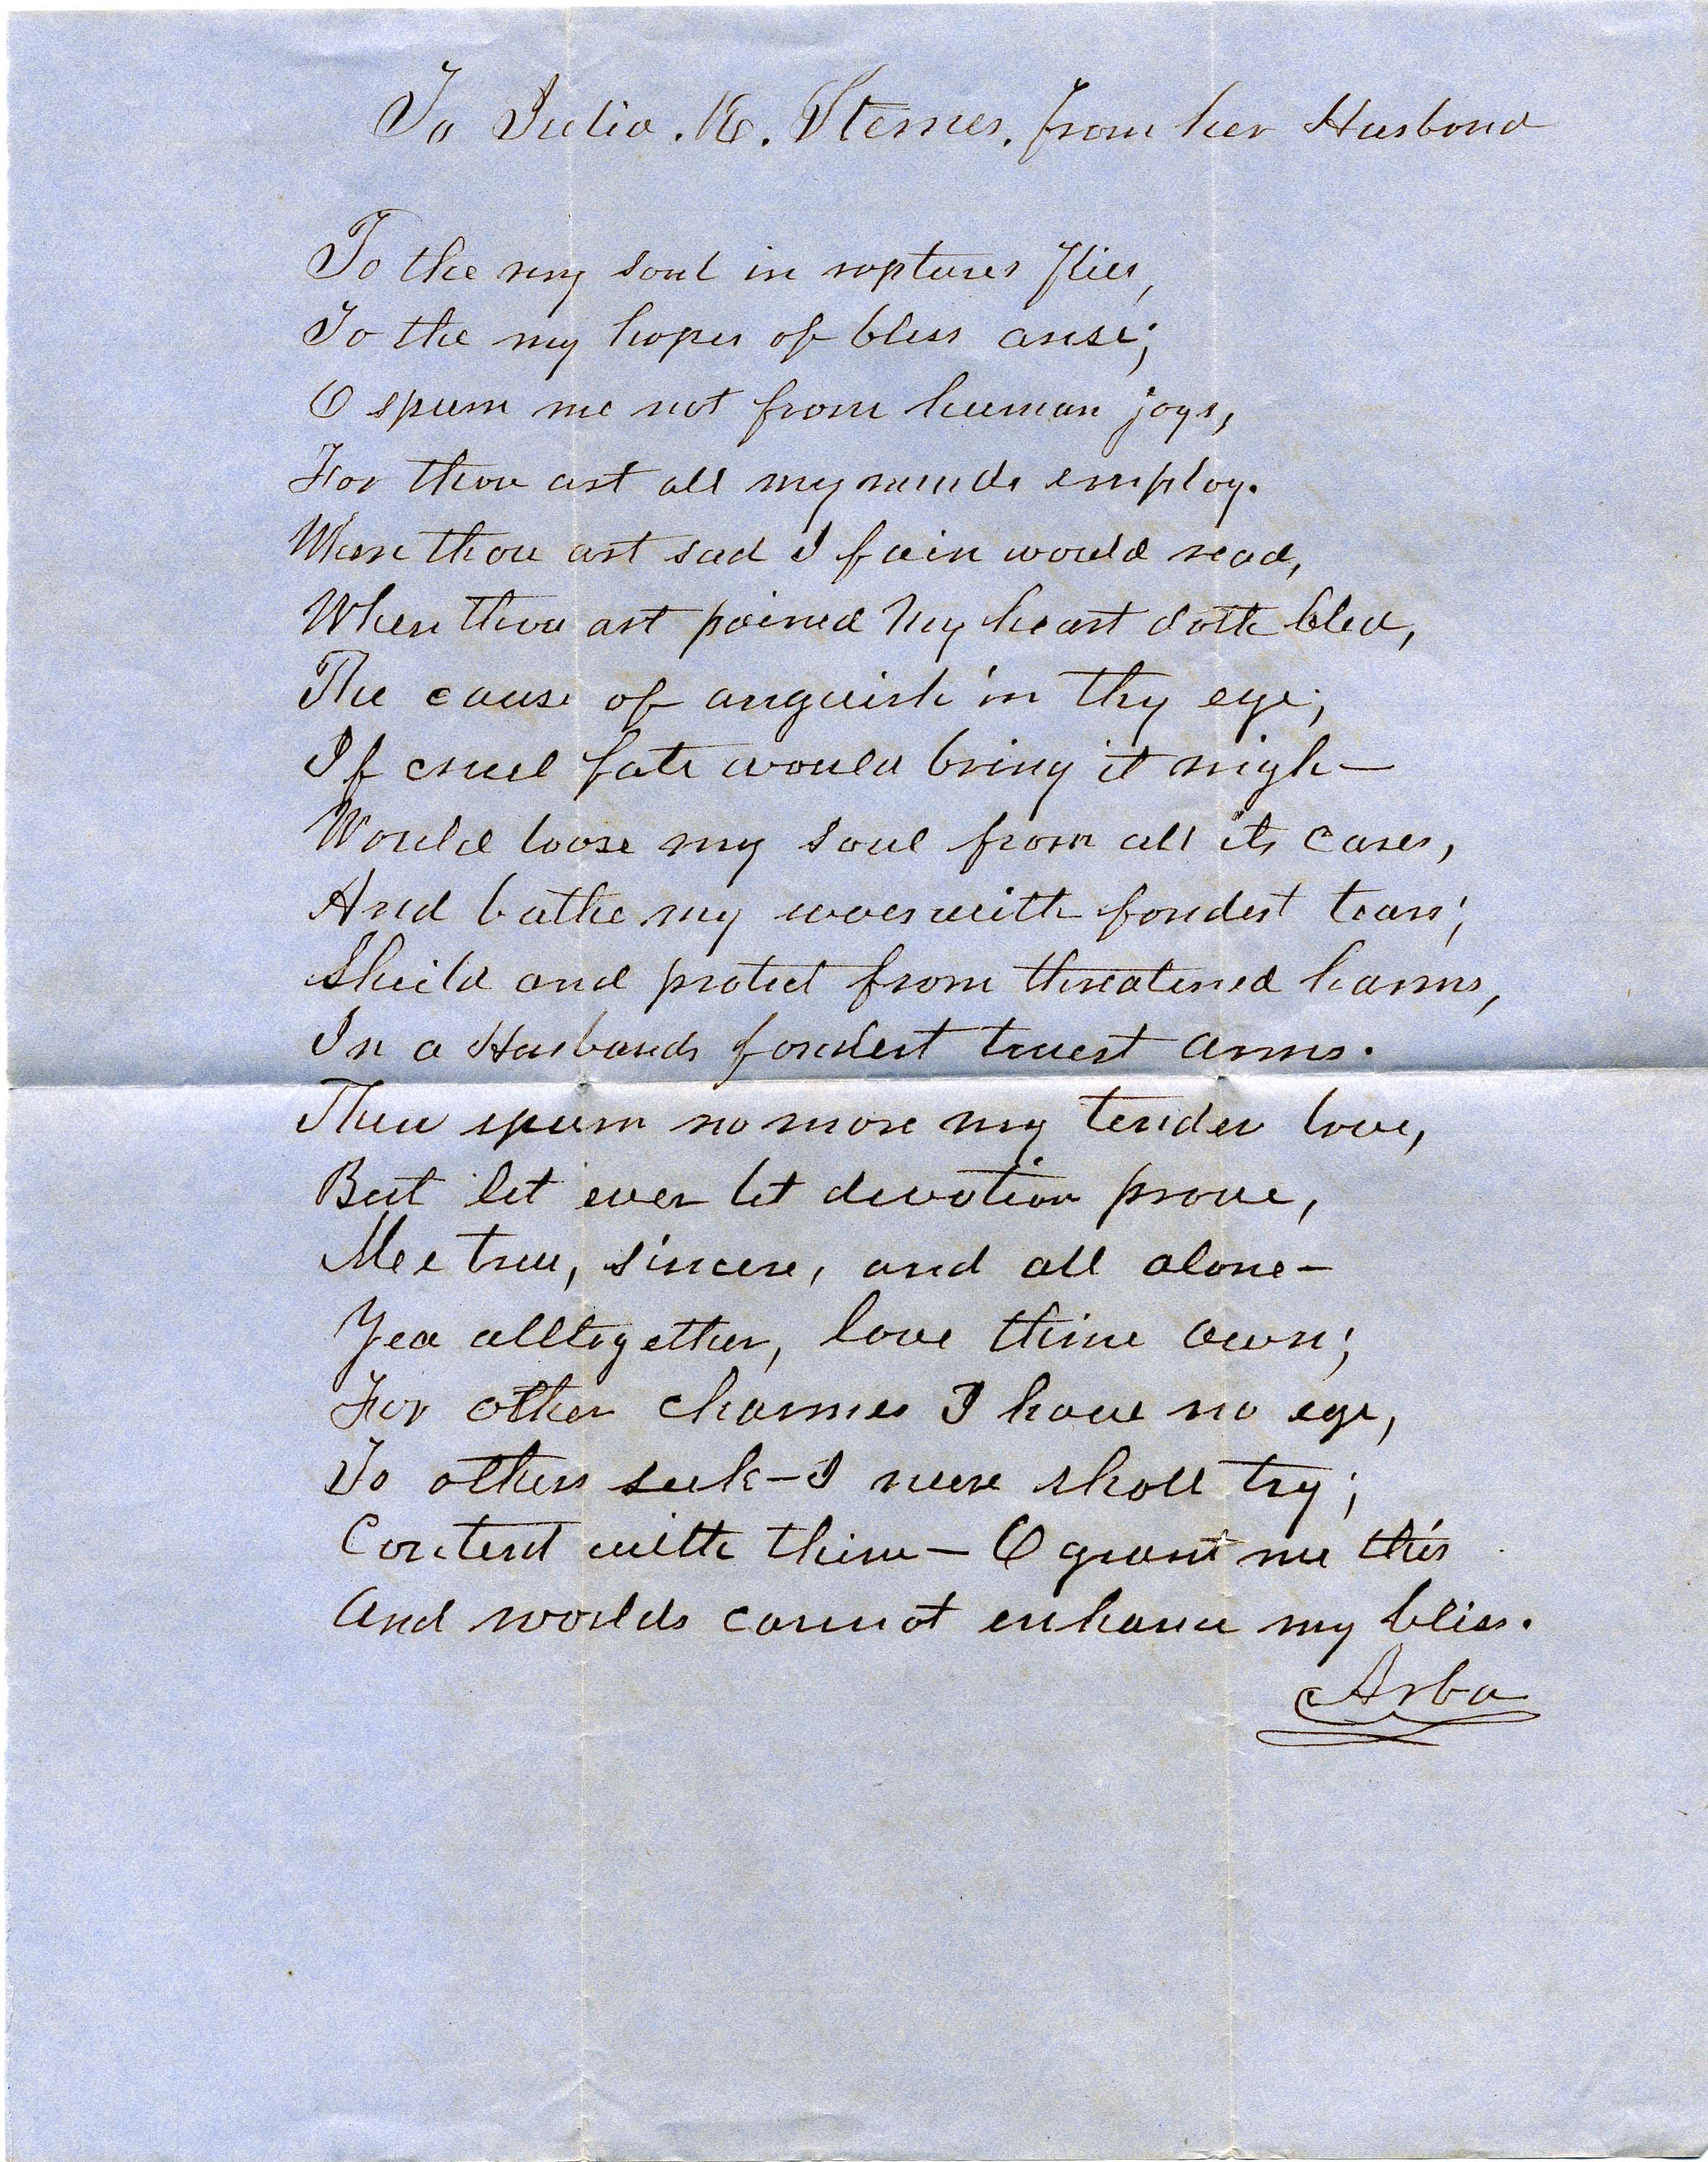 To Julia. K. Sternes. from her Husband
To the my soul in raptures flies,
To the my hopes of bless arise;
O spurn me not from human joys,
For thou art all my minds employ.
When thou art sad I fain would read,
When thou art pained My heart doth bled,
The cause of anguish in thy eye;
If cruel fate would bring it nigh—
Would loose my soul from all its cares,
And bathe my woes with fondest tears;
Sheild and protect from threatened harms,
In a Husbands fondest truest arms.
Then spurn no more my tender love,
But let ever let devotion prove,
Me true, sincere, and all alone—
Yea alltogether, love thine own;
For other charmes I have no eye,
To others seek—I nere shall try;
Content with thine— O grant me this
And worlds cannot enhance my bliss.
Arba